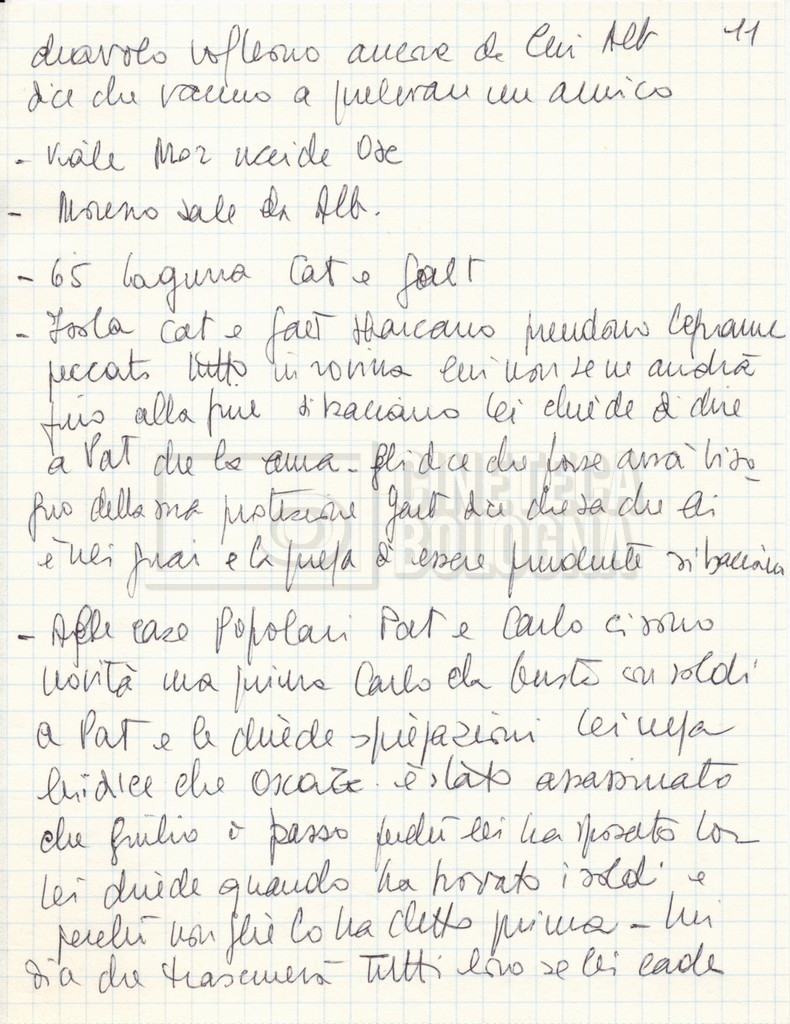 11
diavolo vogliono ancora da lui Alb
dice che vanno a prelevare un amico
- Viale Moz uccide Osc
- Moreno sale da Alb.
- 65 laguna Cat e Gaet
- Isola Cat e Gaet sbarcano prendono
peccato tutto in rovina lui non se ne andrà
fino alla fine si baciano lei chiede di dire
a Pat che la ama - gli dice che forse avrà biso
gno della sua protezione Gaet dice che sa che lei
è nei guai e la prega di essere prudente si baciano
- Alle case Popolari Pat e Carlo ci sono
novità ma prima Carlo da busta con soldi
a Pat e le chiede spiegazioni lei nega
lui dice che Oscar è stato assassinato
che Giulio è pazzo perché lei ha sposato Lor
lei chiede quando ha trovato i soldi e
perché non glielo ha detto prima - lui
dice che trascinerà tutti loro se lei cade
CINETECA
BOLOGNA